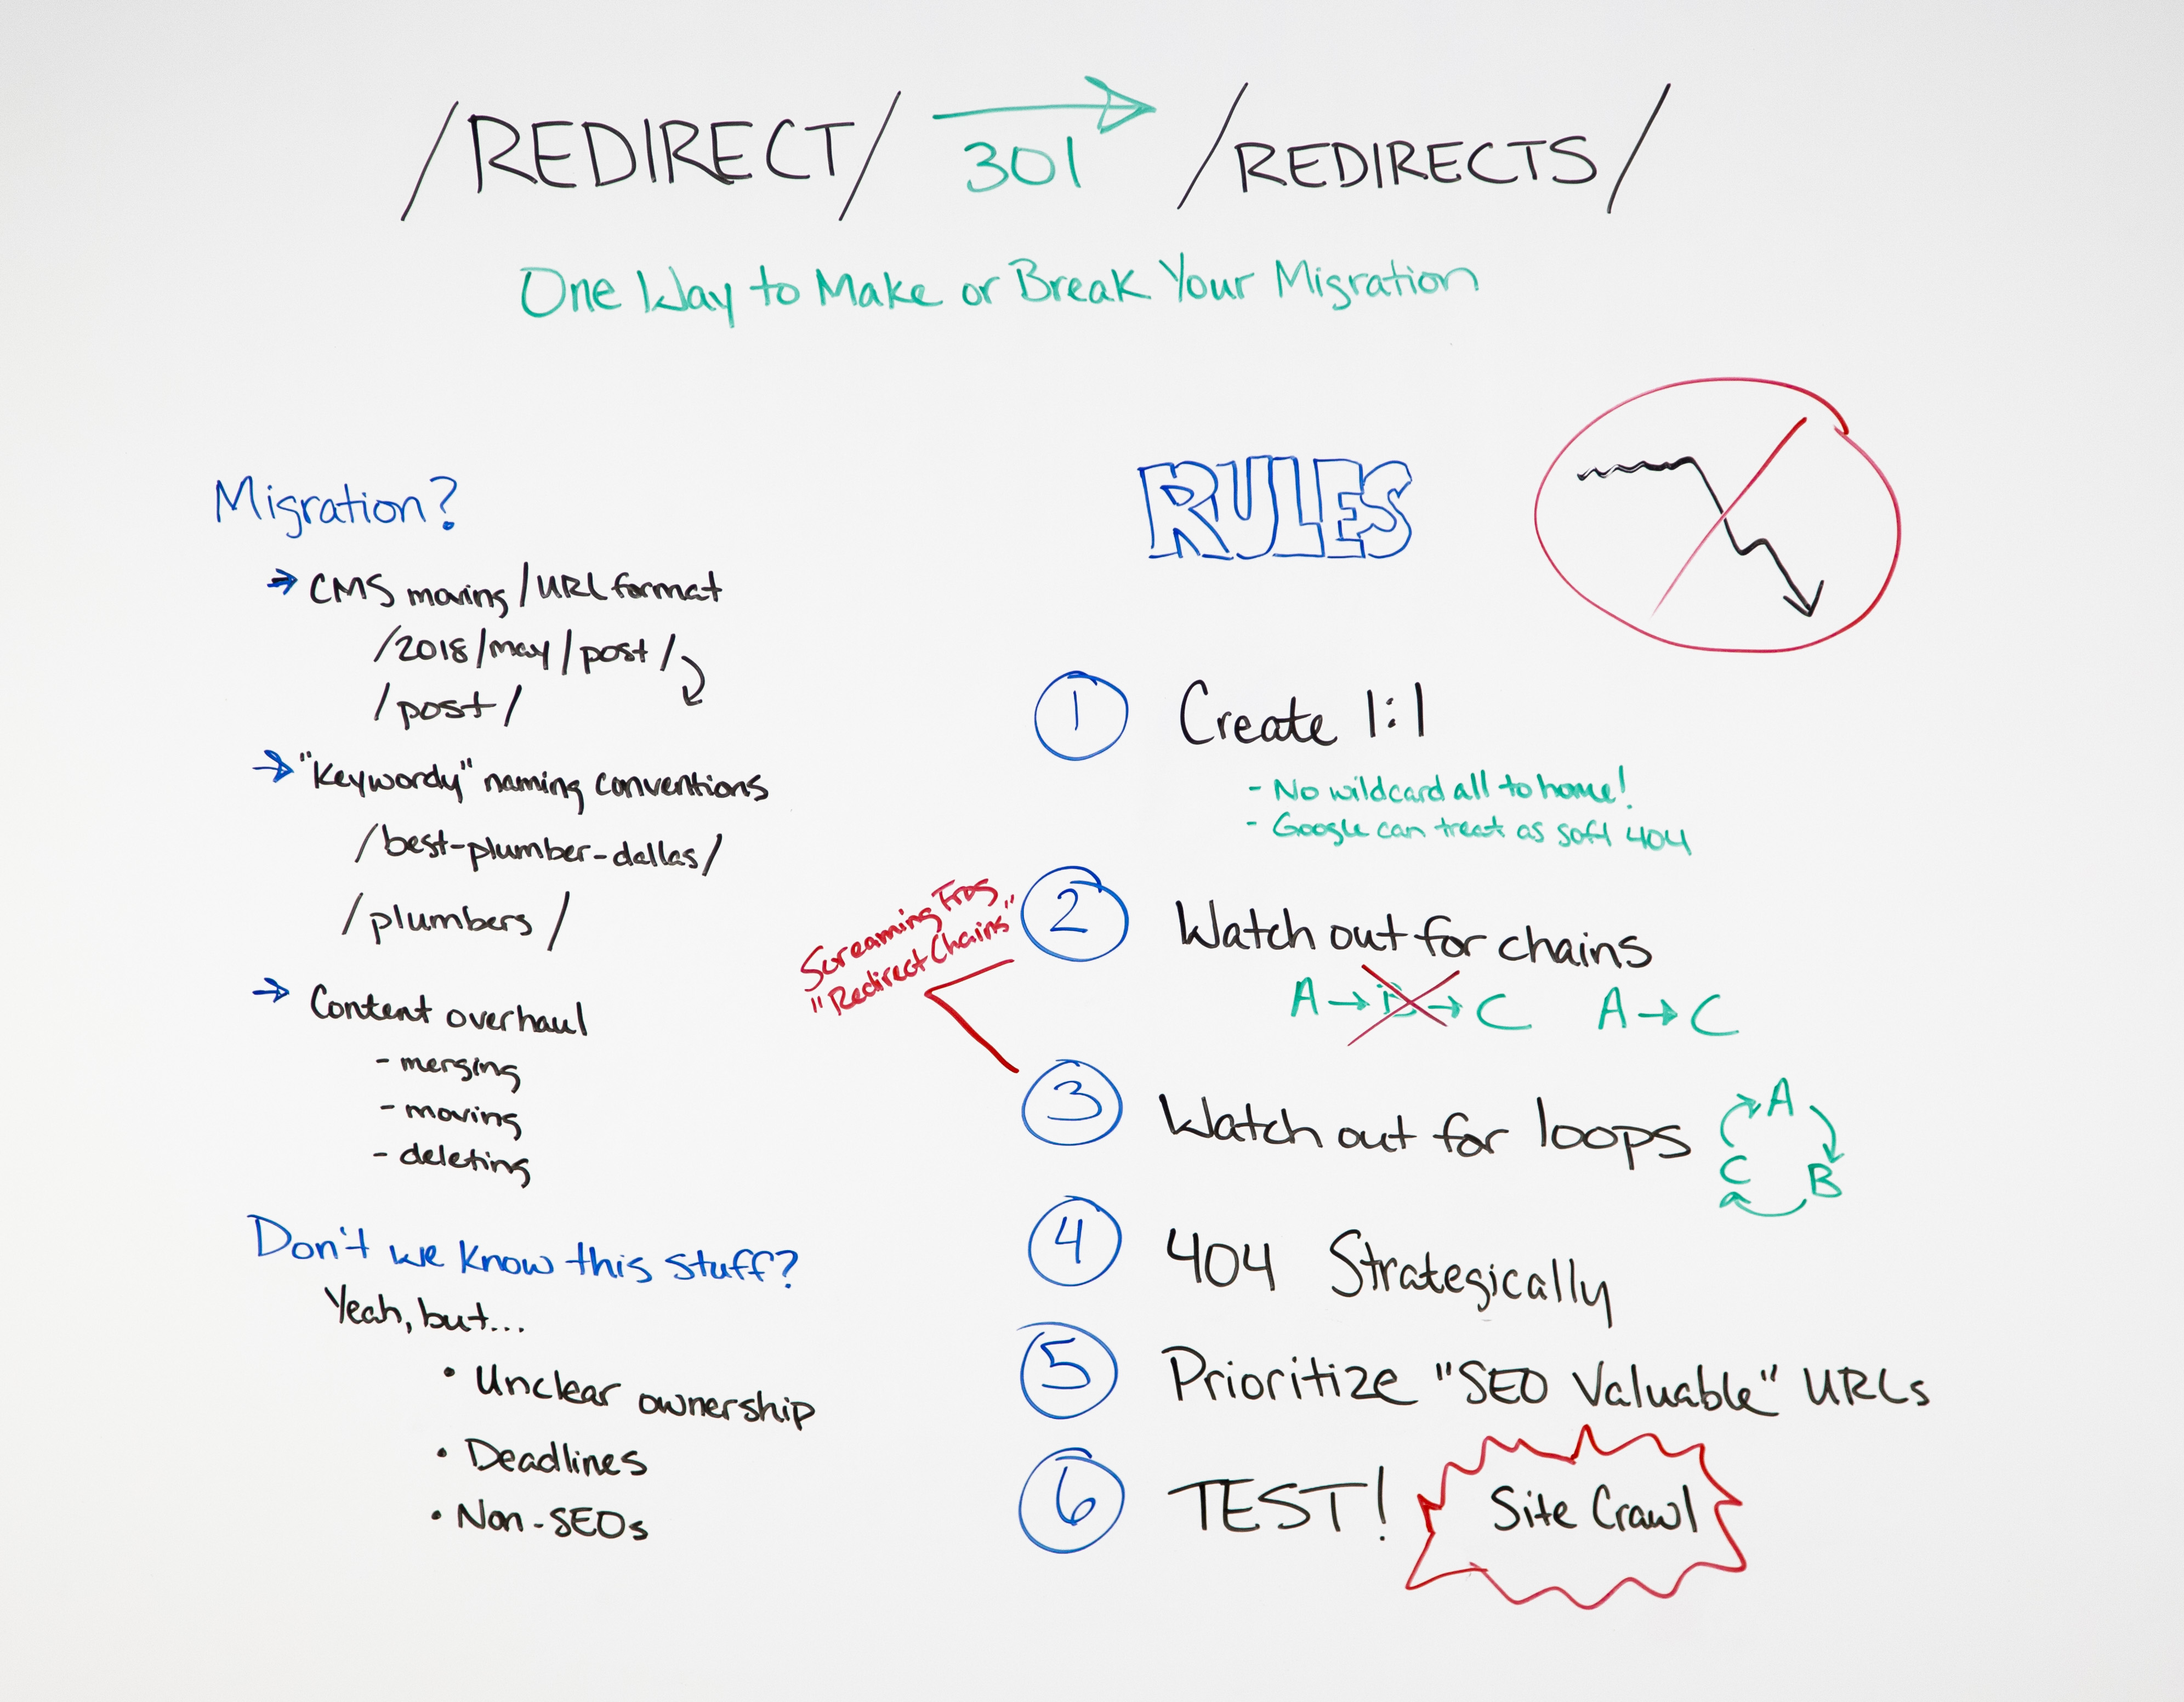 /REDIRECT/ 301 /REDIRECTS/
One Way to Make or Break Your Migration
Migration?
→ CMS moving/URL format
/2018/may/post/
/post/
→ "Keywordy" naming conventions
/best-plumber-dallas/
/plumbers/
→ Content overhaul
- merging
- moving
- deleting
Don't we know this stuff?
Yeah, but...
• Unclear ownership
• Deadlines
• Non-SEOs
RULES
1 Create 1:1
- No wildcard all to home!
- Google can treat as soft 404
Screaming Frog
"Redirect Chains"
2 Watch out for chains
A → B → C A → C
3 Watch out for loops
A
C B
4 404 Strategically
5 Prioritize "SEO Valuable" URLs
6 TEST! Site Crawl